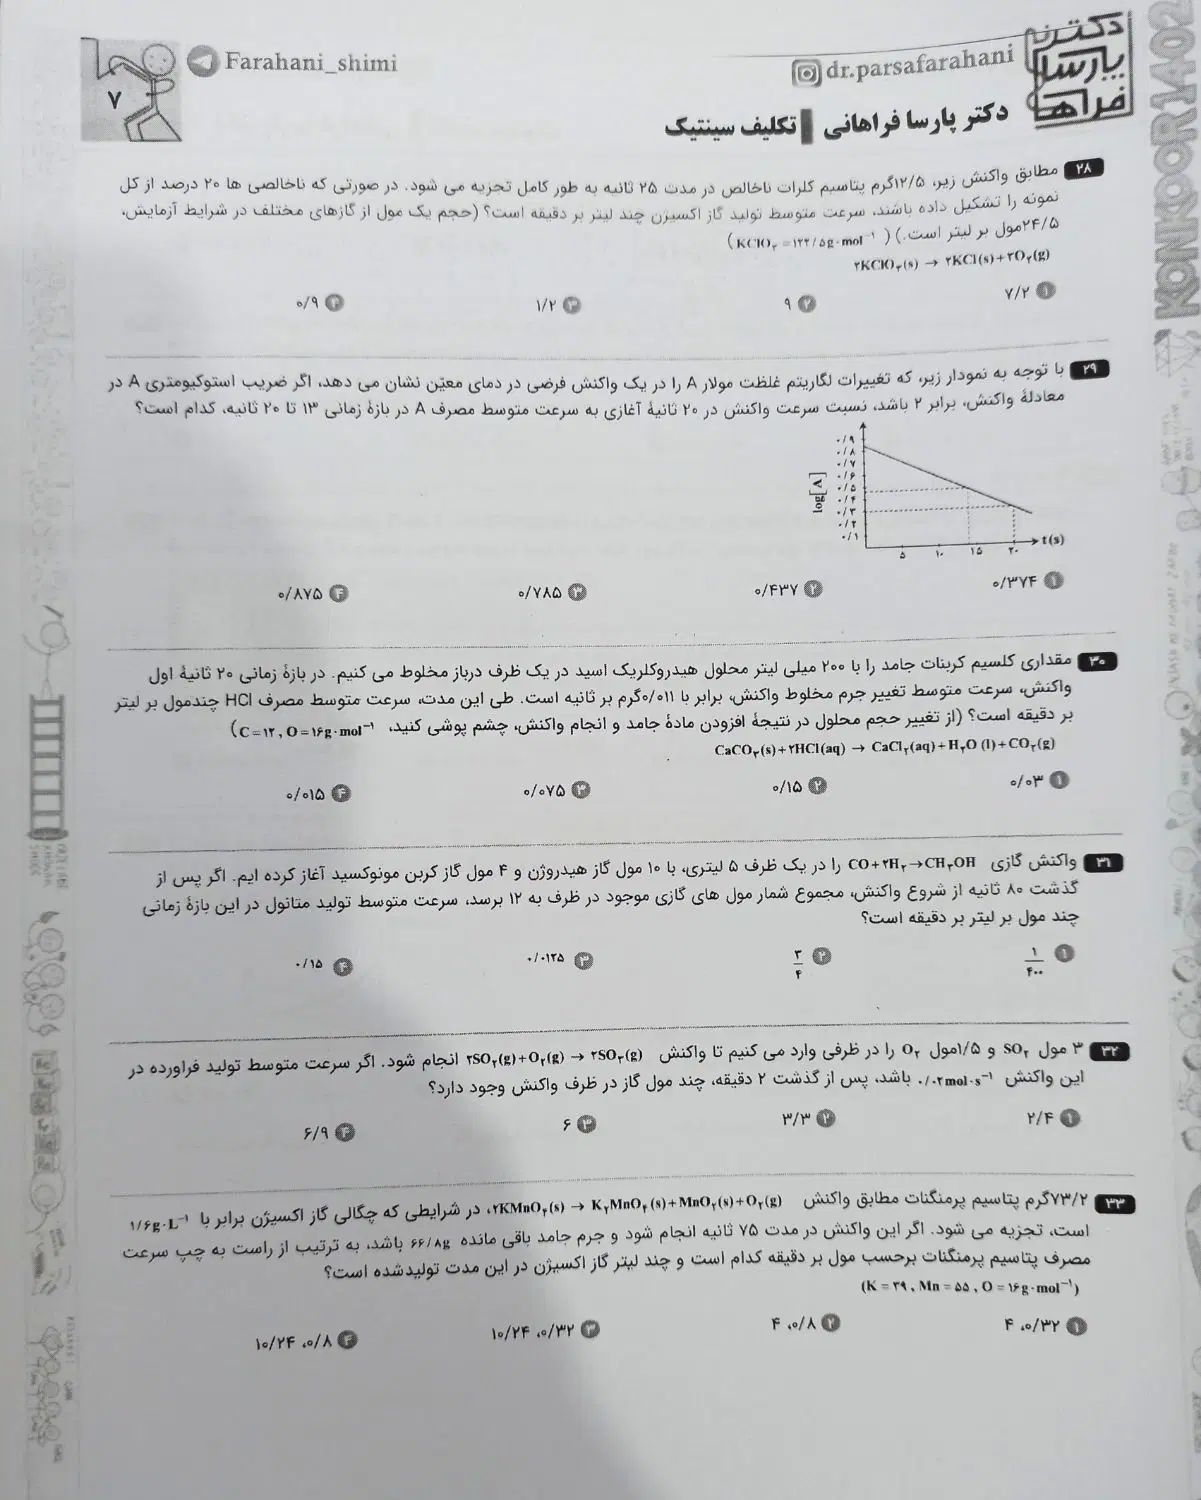 Farahani_shimi
dr.parsafarahani
دکتر پارسا فراهانی
KONKOOR1402
۷
دکتر پارسا فراهانی | تکلیف سینتیک
۲۸ مطابق واکنش زیر، ۱۲/۵گرم پتاسیم کلرات ناخالص در مدت ۲۵ ثانیه به طور کامل تجزیه می شود. در صورتی که ناخالصی ها ۲۰ درصد از کل
نمونه را تشکیل داده باشند، سرعت متوسط تولید گاز اکسیژن چند لیتر بر دقیقه است؟ (حجم یک مول از گازهای مختلف در شرایط آزمایش،
۲۴/۵مول بر لیتر است.) (KClO₃ = ۱۲۲/۵g·mol⁻¹)
۲KClO₃(s) → ۲KCl(s)+۳O₂(g)
۱ ۷/۲
۲ ۹
۳ ۱/۲
۴ ۰/۹
۲۹ با توجه به نمودار زیر، که تغییرات لگاریتم غلظت مولار A را در یک واکنش فرضی در دمای معیّن نشان می دهد، اگر ضریب استوکیومتری A در
معادلهٔ واکنش، برابر ۲ باشد، نسبت سرعت واکنش در ۲۰ ثانیهٔ آغازی به سرعت متوسط مصرف A در بازهٔ زمانی ۱۳ تا ۲۰ ثانیه، کدام است؟
۰/۹
۰/۸
۰/۷
۰/۶
۰/۵
۰/۴
۰/۳
۰/۲
۰/۱
log[A]
۵ ۱۰ ۱۵ ۲۰ t(s)
۱ ۰/۳۷۴
۲ ۰/۴۳۷
۳ ۰/۷۸۵
۴ ۰/۸۷۵
۳۰ مقداری کلسیم کربنات جامد را با ۲۰۰ میلی لیتر محلول هیدروکلریک اسید در یک ظرف درباز مخلوط می کنیم. در بازهٔ زمانی ۲۰ ثانیهٔ اول
واکنش، سرعت متوسط تغییر جرم مخلوط واکنش، برابر با ۰/۰۱۱گرم بر ثانیه است. طی این مدت، سرعت متوسط مصرف HCl چندمول بر لیتر
بر دقیقه است؟ (از تغییر حجم محلول در نتیجهٔ افزودن مادهٔ جامد و انجام واکنش، چشم پوشی کنید، C = ۱۲ , O = ۱۶g·mol⁻¹)
CaCO₃(s)+۲HCl(aq) → CaCl₂(aq)+H₂O (l)+CO₂(g)
۱ ۰/۰۳
۲ ۰/۱۵
۳ ۰/۰۷۵
۴ ۰/۰۱۵
۳۱ واکنش گازی CO+۲H₂→CH₃OH را در یک ظرف ۵ لیتری، با ۱۰ مول گاز هیدروژن و ۴ مول گاز کربن مونوکسید آغاز کرده ایم. اگر پس از
گذشت ۸۰ ثانیه از شروع واکنش، مجموع شمار مول های گازی موجود در ظرف به ۱۲ برسد، سرعت متوسط تولید متانول در این بازهٔ زمانی
چند مول بر لیتر بر دقیقه است؟
۱ ۱/۴۰۰
۲ ۳/۴
۳ ۰/۰۱۲۵
۴ ۰/۱۵
۳۲ ۳ مول SO₂ و ۱/۵مول O₂ را در ظرفی وارد می کنیم تا واکنش ۲SO₂(g)+O₂(g) → ۲SO₃(g) انجام شود. اگر سرعت متوسط تولید فراورده در
این واکنش ۰/۰۲mol·s⁻¹ باشد، پس از گذشت ۲ دقیقه، چند مول گاز در ظرف واکنش وجود دارد؟
۱ ۲/۴
۲ ۳/۳
۳ ۶
۴ ۶/۹
۳۳ ۷۳/۲گرم پتاسیم پرمنگنات مطابق واکنش ۲KMnO₄(s) → K₂MnO₄(s)+MnO₂(s)+O₂(g)، در شرایطی که چگالی گاز اکسیژن برابر با ۱/۶g·L⁻¹
است، تجزیه می شود. اگر این واکنش در مدت ۷۵ ثانیه انجام شود و جرم جامد باقی مانده ۶۶/۸g باشد، به ترتیب از راست به چپ سرعت
مصرف پتاسیم پرمنگنات برحسب مول بر دقیقه کدام است و چند لیتر گاز اکسیژن در این مدت تولیدشده است؟
(K = ۳۹ , Mn = ۵۵ , O = ۱۶g·mol⁻¹)
۱ ۰/۳۲، ۴
۲ ۰/۸، ۴
۳ ۰/۳۲، ۱۰/۲۴
۴ ۰/۸، ۱۰/۲۴